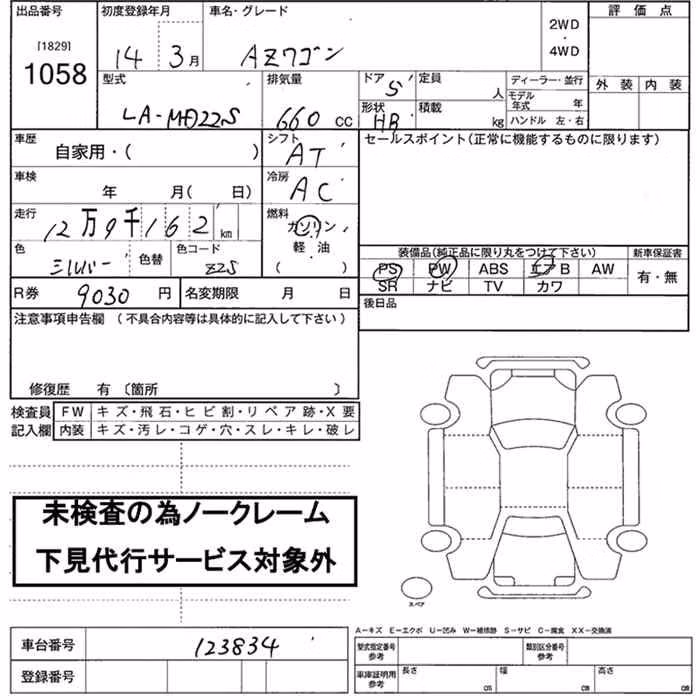 出品番号 初度登録年月 車名・グレード 評価点
[1829] 1058 14 3月 AZワゴン 2WD・4WD
型式 排気量 ドア 5 定員 人 ディーラー・並行 外装 内装
LA-MD22S 660 CC 形状 HB 積載 kg モデル年式 年
ハンドル 左・右
車歴 自家用・( ) シフト AT セールスポイント(正常に機能するものに限ります)
車検 年 月( 日) 冷房 AC
走行 12万9千162km 燃料 ガソリン
軽油
( )
色 シルバー 色替 色コード Z2S
装備品(純正品に限り丸をつけて下さい) 新車保証書
PS PW ABS エアB AW 有・無
SR ナビ TV カワ
R券 9030円 名変期限 月 日 後日品
注意事項申告欄 (不具合内容等は具体的に記入して下さい)
修復歴 有 〔箇所 〕
検査員 FW キズ・飛石・ヒビ割・リペア跡・X要
記入欄 内装 キズ・汚レ・コゲ・穴・スレ・キレ・破レ
未検査の為ノークレーム
下見代行サービス対象外
スペア
A-キズ E-エクボ U-凹み W-補修跡 S-サビ C-腐食 XX-交換済
車台番号 123834 型式指定番号 参考 類別区分番号 参考
登録番号 車庫証明用 参考 長さ cm 幅 cm 高さ cm